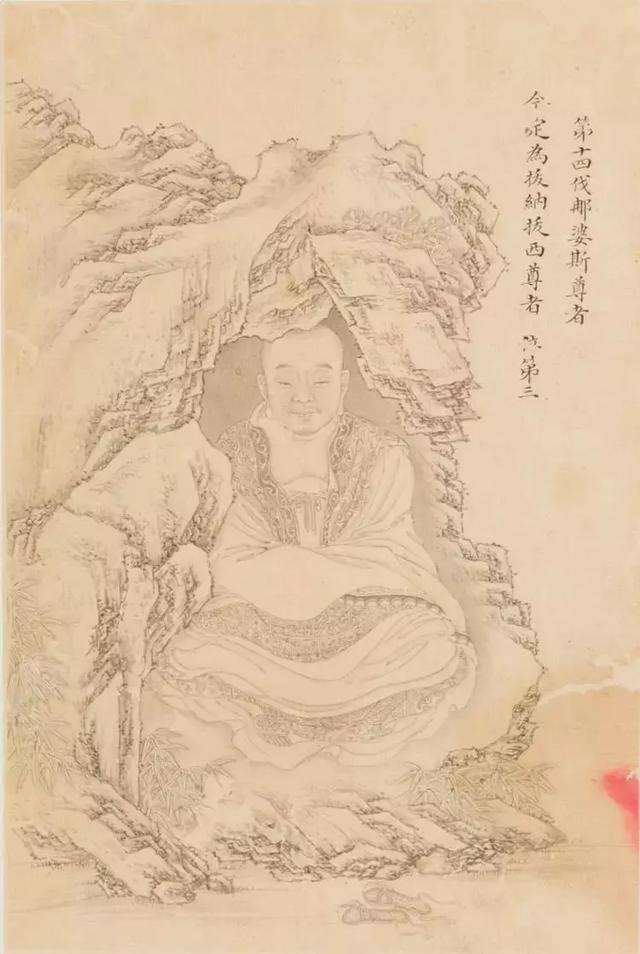 第十四伐那婆斯尊者
今定為拔納拔西尊者 第三